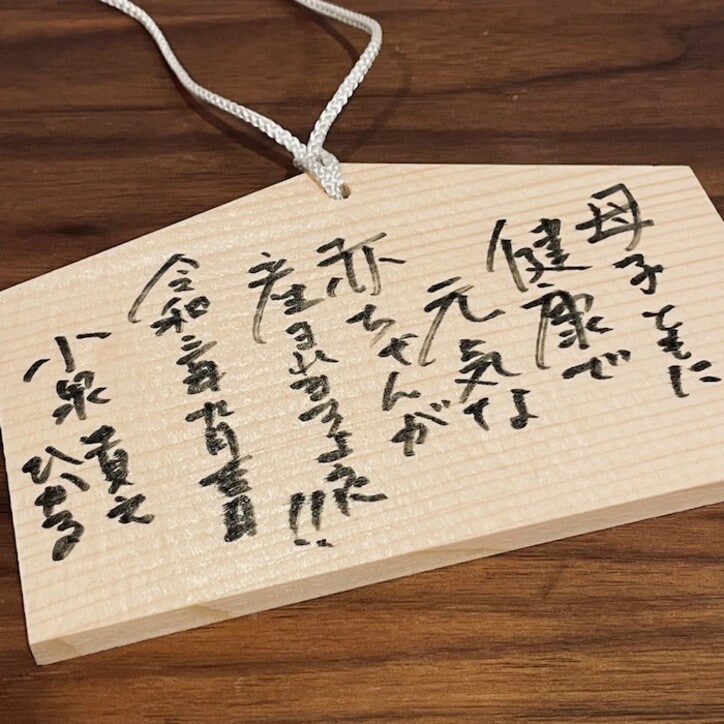 母子ともに
健康で
元気な
赤ちゃんが
産まれますように!!
令和三年
小泉 貴之
ひかる